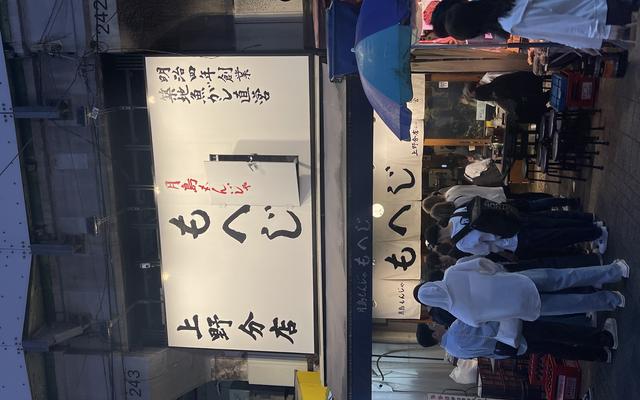 242
明治四年創業
築地魚がし直営
月島もんじゃ
もへじ
上野分店
243
月島もんじゃ もへじ
上野分店
もへじ
月島もんじゃ